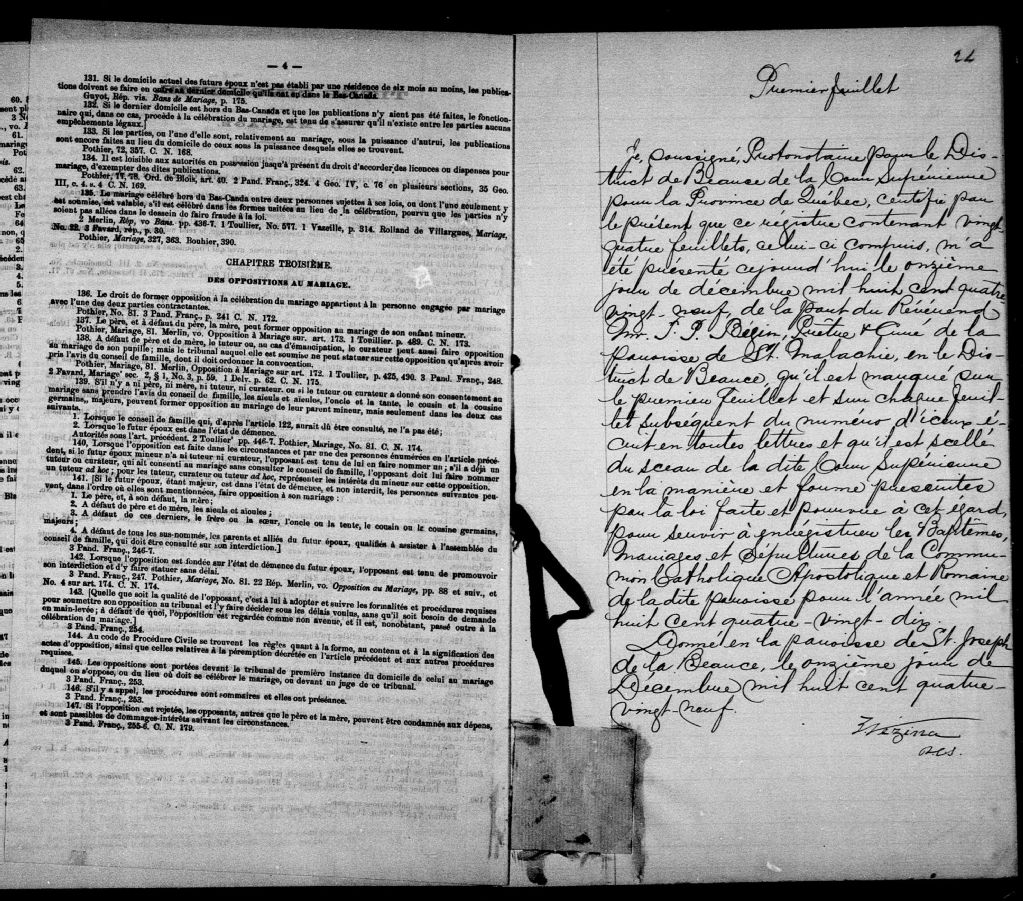 — 4 —
131. Si le domicile actuel des futurs époux n'est pas établi par une résidence de six mois au moins, les publica-
tions doivent se faire en outre au dernier domicile qu'ils ont eu dans le Bas-Canada.
Guyot, Rép. vis. Bans de Mariage, p. 175.
132. Si le dernier domicile est hors du Bas-Canada et que les publications n'y aient pas été faites, le fonction-
naire qui, dans ce cas, procède à la célébration du mariage, est tenu de s'assurer qu'il n'existe entre les parties aucuns
empêchements légaux.]
133. Si les parties, ou l'une d'elle sont, relativement au mariage, sous la puissance d'autrui, les publications
sont encore faites au lieu du domicile de ceux sous la puissance desquels elles se trouvent.
Pothier, 72, 357. C. N. 168.
134. Il est loisible aux autorités en possession jusqu'à présent du droit d'accorder des licences ou dispenses pour
mariage, d'exempter des dites publications.
Pothier, IV, 78. Ord. de Blois, art. 40. 2 Pand. Franç., 324. 4 Geo. IV, c. 76 en plusieurs sections, 35 Geo.
III, c. 4. s. 4 C. N. 169.
135. Le mariage célébré hors du Bas-Canda entre deux personnes sujettes à ses lois, ou dont l'une seulement y
est soumise, est valable, s'il est célébré dans les formes usitées au lieu de la célébration, pourvu que les parties n'y
soient pas allées dans le dessein de faire fraude à la loi.
2 Merlin, Rép, vo Bans. pp. 436-7. 1 Toulier, No. 577. 1 Vazeille, p. 314. Rolland de Villargues, Mariage,
No. 22. 3 Favard, rép., p. 30.
Pothier, Mariage, 327, 363. Bouhier, 390.
CHAPITRE TROISIÈME.
DES OPPOSITIONS AU MARIAGE.
136. Le droit de former opposition à la célébration du mariage appartient à la personne engagée par mariage
avec l'une des deux parties contractantes.
Pothier, No. 81. 3 Pand. Franç., p. 241 C. N. 172.
137. Le père, et à défaut du père, la mère, peut former opposition au mariage de son enfant mineur.
Pothier, Mariage, 81. Merlin, vo. Opposition à Mariage sur. art. 173. 1 Toullier. p. 489. C. N. 173.
138. A défaut de père et de mère, le tuteur ou, au cas d'émancipation, le curateur peut aussi faire opposition
au mariage de son pupille; mais le tribunal auquel elle est soumise ne peut statuer sur cette opposition qu'après avoir
pris l'avis du conseil de famille, dont il doit ordonner la convocation.
Pothier, Mariage, 81. Merlin, Opposition à Mariage sur art. 172. 1 Toullier, p. 425, 490. 3 Pand. Franç., 248.
2 Favard, Mariage' sec. 2, § 1, No. 3, p. 59. 1 Delv. p. 62. C. N. 175.
139. S'il n'y a ni père, ni mère, ni tuteur, ni curateur, ou si le tuteur ou curateur a donné son consentement au
mariage sans prendre l'avis du conseil de famille, les aïeuls et aïeules, l'oncle et la tante, le cousin et la cousine
germains, majeurs, peuvent former opposition au mariage de leur parent mineur, mais seulement dans les deux cas
suivants.
1. Lorsque le conseil de famille qui, d'après l'article 122, aurait dû être consulté, ne l'a pas été;
2. Lorsque le futur époux est dans l'état de démence.
Autorités sous l'art. précédent. 2 Toullier' pp. 446-7. Pothier, Mariage, No. 81. C. N. 174.
140. Lorsque l'opposition est faite dans les circonstances et par une des personnes énumérées en l'article précé-
dent, si le futur époux mineur n'a ni tuteur ni curateur, l'opposant est tenu de lui en faire nommer un; s'il a déjà un
tuteur ou curateur, qui ait consenti au mariage sans consulter le conseil de famille, l'opposant doit lui faire nommer
un tuteur ad hoc; pour les tuteur, curateur ou tuteur ad hoc, représenter les intérêts du mineur sur cette opposition.
141. [Si le futur époux, étant majeur, est dans l'état de démence, et non interdit, les personnes suivantes peu-
vent, dans l'ordre où elles sont mentionnées, faire opposition à son mariage:
1. Le père, et, à son défaut, la mère;
2. A défaut de père et de mère, les aïeuls et aïeules;
3. A défaut de ces derniers, le frère ou la sœur, l'oncle ou la tente, le cousin ou la cousine germains,
majeurs;
4. A défaut de tous les sus-nommés, les parents et alliés du futur époux, qualifiés à assister à l'assemblée du
conseil de famille, qui doit être consulté sur son interdiction.]
3 Pand. Franç., 246-7.
142. Lorsque l'opposition est fondée sur l'état de démence du futur époux, l'opposant est tenu de promouvoir
son interdiction et d'y faire statuer sans délai.
3 Pand. Franç., 247. Pothier, Mariage, No. 81. 22 Rép. Merlin, vo. Opposition au Mariage, pp. 88 et suiv., et
No. 4 sur art. 174. C. N. 174.
143. [Quelle que soit la qualité de l'opposant, c'est à lui à adopter et suivre les formalités et procédures requises
pour soumettre son opposition au tribunal et l'y faire décider sous les délais voulus, sans qu'il soit besoin de demande
en main-levée; à défaut de quoi, l'opposition est regardée comme non avenue, et il est, nonobstant, passé outre à la
célébration du mariage.]
3 Pand. Franç., 254.
144. Au code de Procédure Civile se trouvent les règles quant à la forme, au contenu et à la signification des
actes d'opposition, ainsi que celles relatives à la péremption décrétée en l'article précédent et aux autres procédures
requises.
145. Les oppositions sont portées devant le tribunal de première instance du domicile de celui au mariage
duquel on s'oppose, ou du lieu où doit se célébrer le mariage, ou devant un juge de ce tribunal.
3 Pand. Franç., 253.
146. S'il y a appel, les procédures sont sommaires et elles ont préséance.
3 Pand. Franç., 253.
147. Si l'opposition est rejetée, les opposants, autres que le père et la mère, peuvent être condamnés aux dépens,
et sont passibles de dommages-intérêts suivant les circonstances.
3 Pand. Franç., 255-6. C. N. 179.
Premier feuillet
Je, soussigné, Protonotaire pour le Dis-
trict de Beauce de la Cour Supérieure
pour la Province de Québec, certifie par
le présent que ce régistre contenant vingt
quatre feuillets, celui-ci compris, m'a
été présenté cejourd'hui le onzième
jour de décembre mil huit cent quatre
vingt-neuf, de la part du Révérend
Mr. J. P. Bégin, Prêtre & Curé de la
paroisse de St. Malachie, en le Dis-
trict de Beauce, qu'il est marqué sur
le premier feuillet et sur chaque feuil-
let subséquent du numéro d'iceux é-
crit en toutes lettres et qu'il est scellé
du sceau de la dite Cour Supérieure
en la manière et forme prescrites
par la loi faite et pourvue à cet égard,
pour servir à enrégistrer les Baptêmes,
Mariages et Sépultures de la Commu-
nion Catholique Apostolique et Romaine
de la dite paroisse pour l'année mil
huit cent quatre-vingt-dix.
Donné en la paroisse de St. Joseph
de la Beauce, le onzième jour de
Décembre mil huit cent quatre-
vingt-neuf.
Vézina
P.C.S.